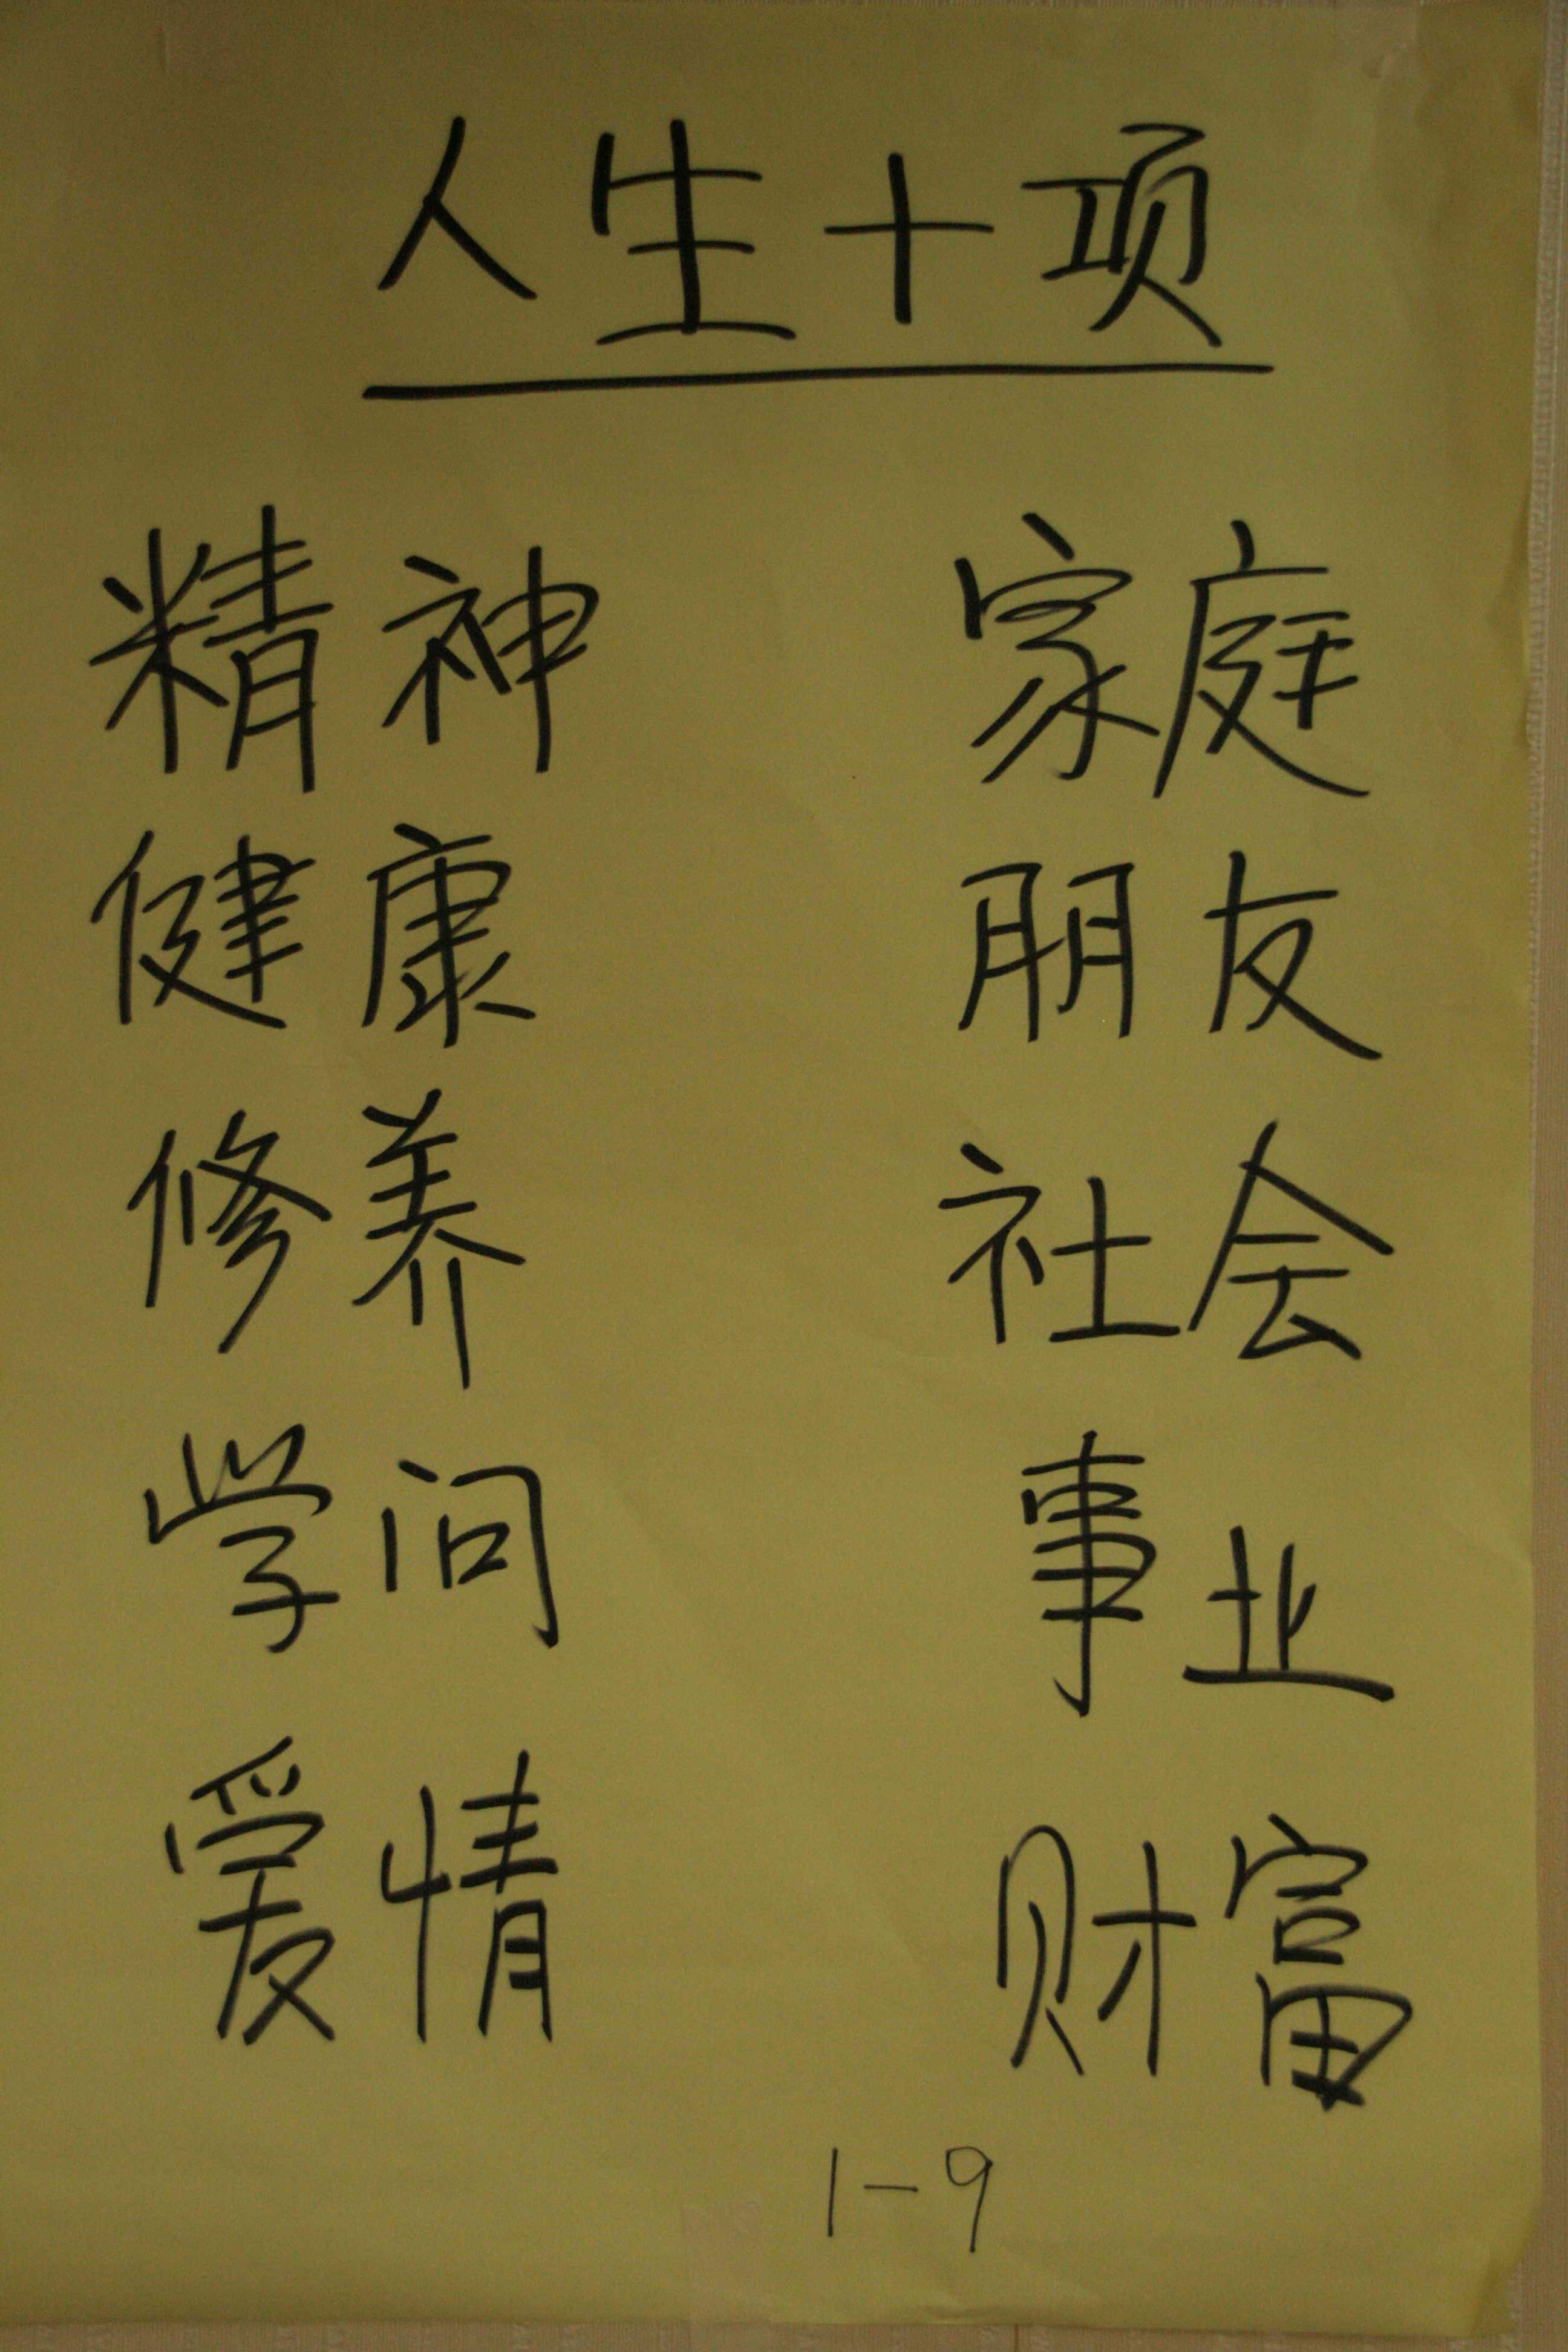 人生十项
精神 家庭
健康 朋友
修养 社会
学问 事业
爱情 财富
1-9